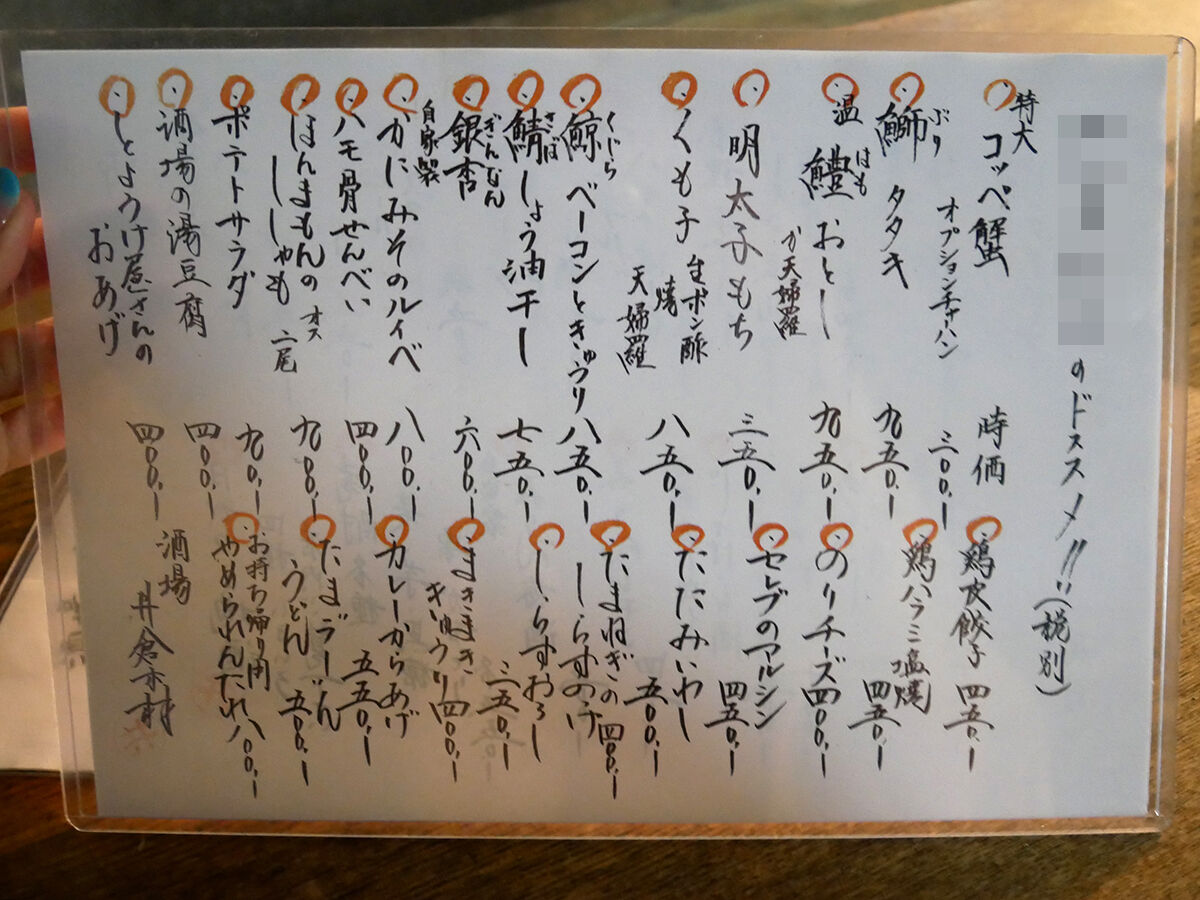 のドススメ!!(税別)
特大 コッペ蟹 時価
オプションチャーハン 三〇〇.ー
鰤 ぶり タタキ 九五〇.ー
温 鱧 はも おとし 九五〇.ー
か天婦羅
明太子もち 三五〇.ー
くも子 生ポン酢 八五〇.ー
焼
天婦羅
鯨 くじら ベーコンときゅうり 八五〇.ー
鯖 さば しょう油干し 七五〇.ー
銀杏 ぎんなん 六〇〇.ー
自家製
かにみそのルイベ 八〇〇.ー
ハモ骨せんべい 四〇〇.ー
ほんまもんの
ししゃも オス 二尾 九〇〇.ー
ポテトサラダ 九〇.ー
酒場の湯豆腐 四〇〇.ー
しとようけ屋さんの
おあげ 四〇〇.ー
鶏皮餃子 四五〇.ー
鶏ハラミ塩焼 四五〇.ー
のりチーズ 四〇〇.ー
セレブのマルシン 四五〇.ー
たたみいわし 五〇〇.ー
たまねぎの
しらすのけ 四〇〇.ー
しらすおろし 三五〇.ー
まきまき
きゅうり 四〇〇.ー
カレーからあげ 五五〇.ー
たまごーどん
うどん 五〇〇.ー
お持ち帰り用
やめられんたれ 八〇〇.ー
酒場
井倉木材